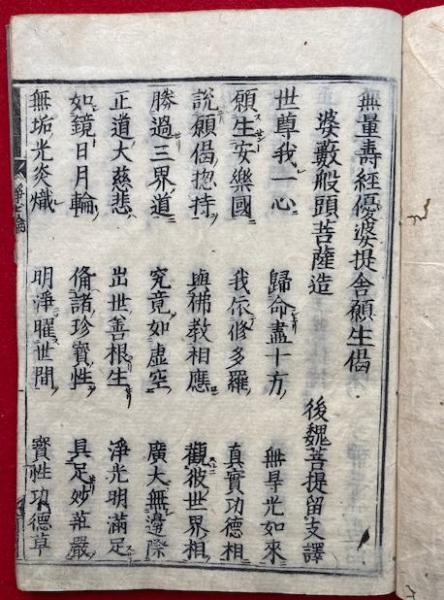 無量壽經優婆提舍願生偈
婆藪般頭菩薩造　後魏菩提留支譯
世尊我一心　歸命盡十方　無㝵光如來
願生安樂國　我依修多羅　真實功德相
說願偈揔持　與佛教相應　觀彼世界相
勝過三界道　究竟如虛空　廣大無邊際
正道大慈悲　出世善根生　淨光明滿足
如鏡日月輪　俻諸珍寶性　具足妙莊嚴
無垢光炎熾　明淨曜世間　寶性功德草